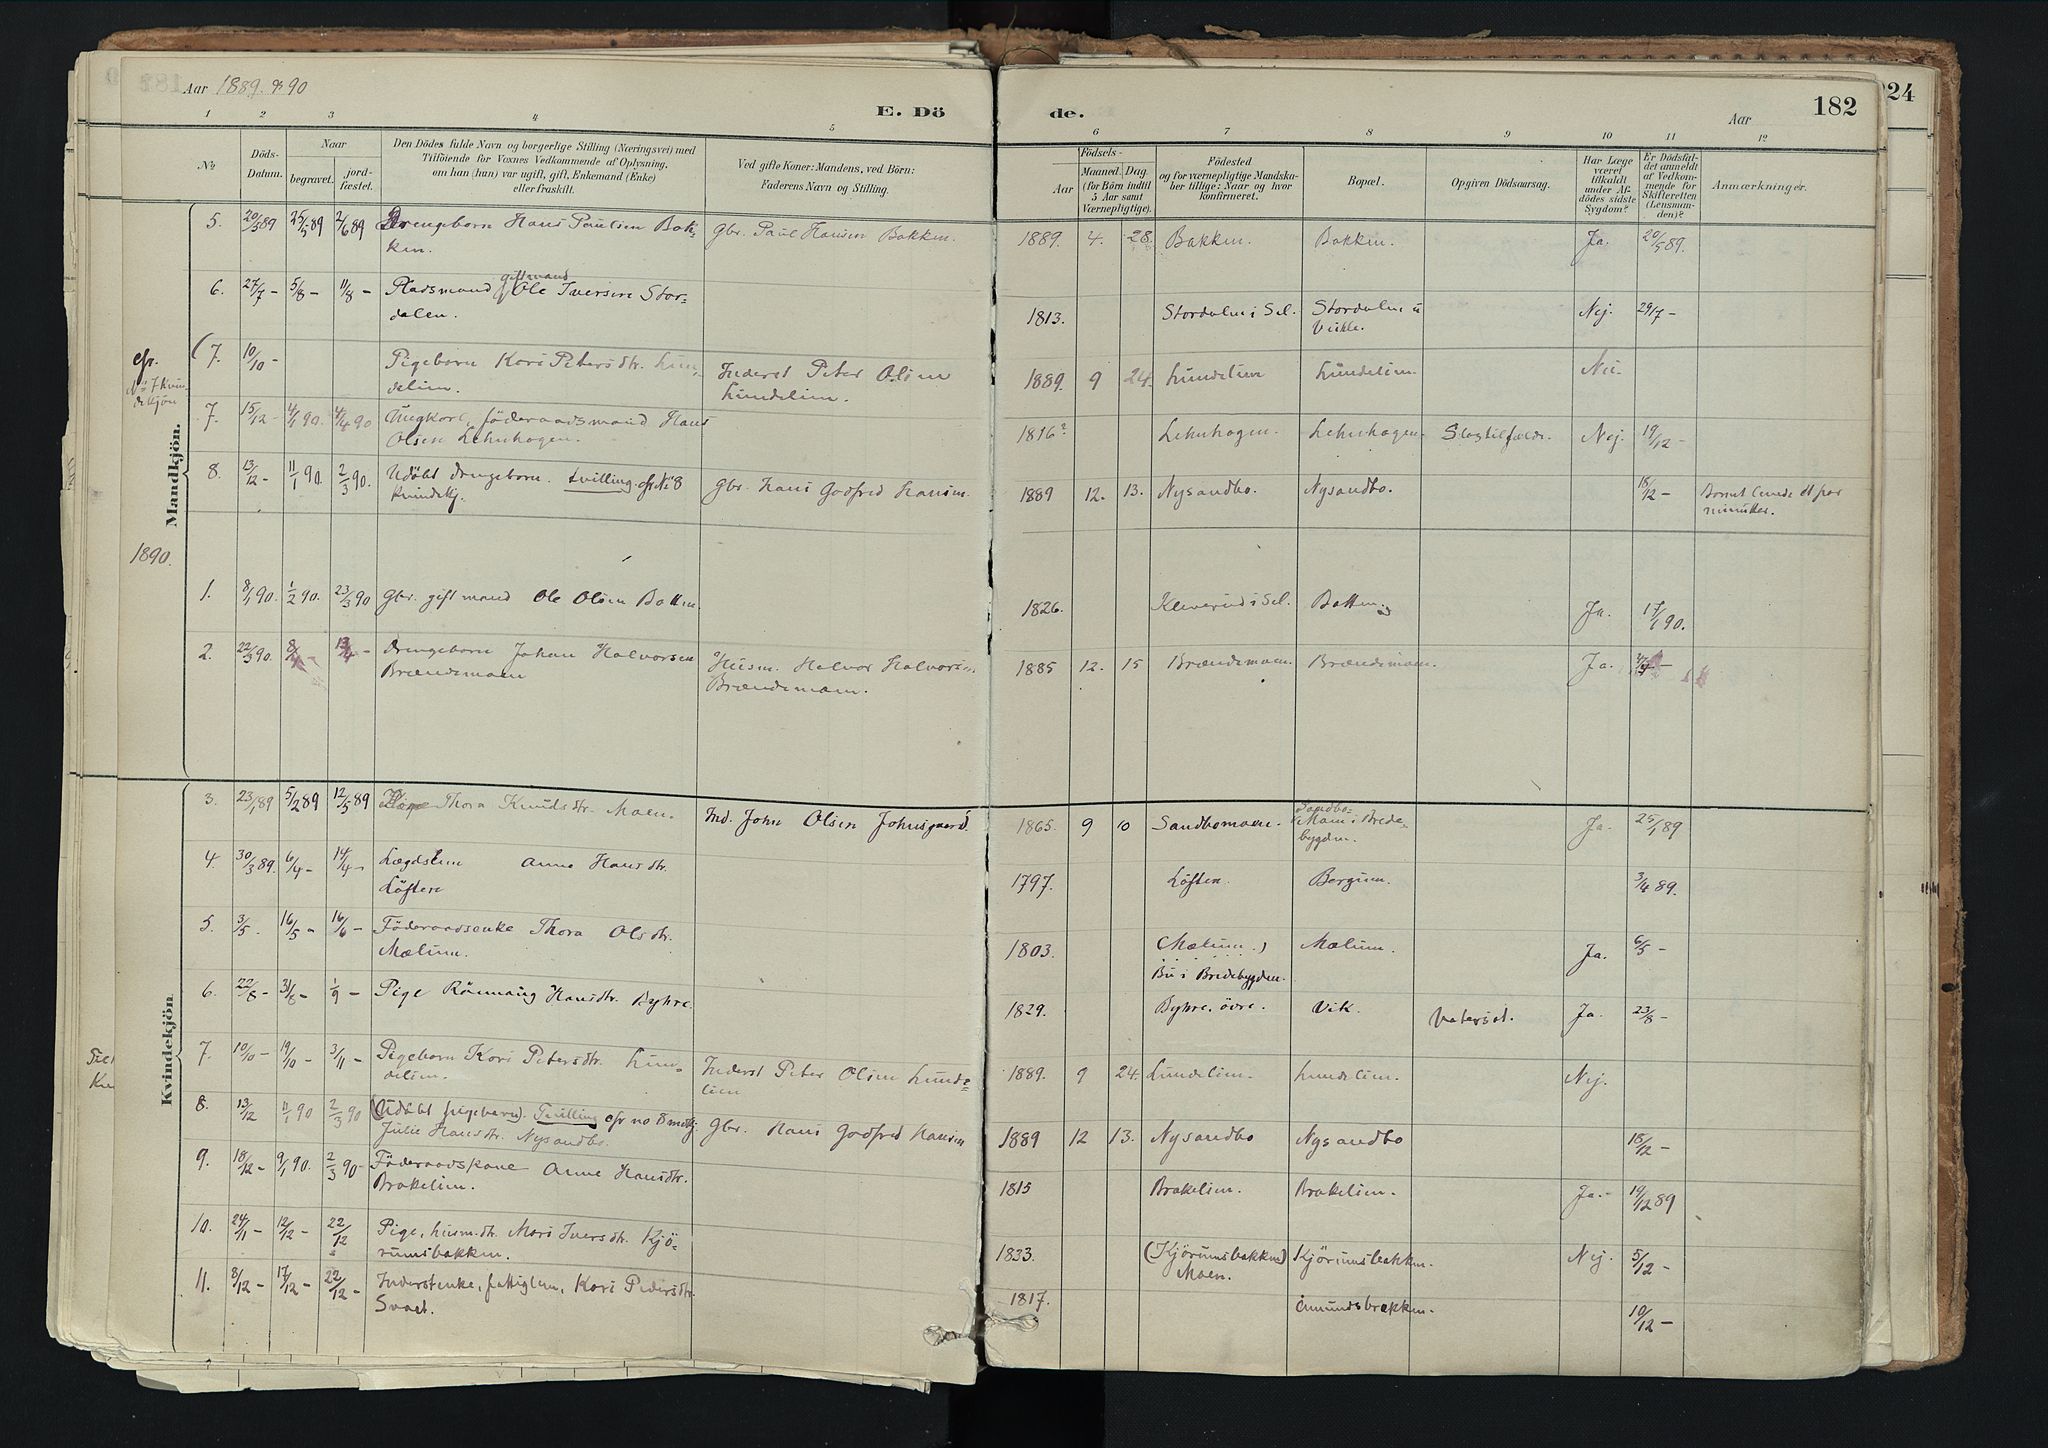 Aar 1889 & 90
E. Döde.
Aar
182
224
1 2 3 4 5 6 7 8 9 10 11 12
No.
Döds-Datum.
Naar
begravet.
jord-fæstet.
Den Dödes fulde Navn og borgerlige Stilling (Næringsvei) med
Tilföiende for Voxnes Vedkommende af Oplysning,
om han (hun) var ugift, gift, Enkemand (Enke)
eller fraskilt.
Ved gifte Koner: Mandens, ved Börn:
Faderens Navn og Stilling.
Födsels-
Aar
Maaned. Dag.
(for Börn indtil
5 Aar samt
Værnepligtige).
Födested
og for værnepligtige Mandska-
ber tillige: Naar og hvor
konfirmeret.
Bopæl.
Opgiven Dödsaarsag.
Har Læge
været
tilkaldt
under Af-
dödes sidste
Sygdom?
Er Dödsfal-
det anmeldt
af Vedkom-
mende for
Skifteretten
(Lensman-
den)?
Anmærkninger.
Mandkjön.
5. 20/5 89 25/5 89 2/6 89 Drengebarn Hans Paulsen Bak- Gbr. Paul Hansen Bakken. 1889. 4. 28. Bakken. Bakken. Ja. 20/5 89.
ken.
6. 27/7 – 5/8 – 11/8 – Pladsmand giftmand Ole Iversen Stor- 1813. Stordalen i Sel. Stordalen i Nej. 29/7 –
dalen.
cfr. No 7 Kvin-
dekjön
(7. 10/10 – Pigebarn Kari Petersdtr. Lun- Inderst Peter Olsen 1889. 9 24. Lundelien Lundelien. Nei.
delien. Lundelien.
7. 15/12 – 4/1 90. 4/4 90 Ungkarl, föderaadsmand Hans 1816? Lehnhagen. Lehnhagen. Slagtilfælde. Nej. 19/12 –
Olsen Lehnhagen.
8. 13/12 – 11/1 90. 2/3 90. Udöbt drengebarn. tvilling cfr No 8 Gbr. Hans Godfred Hansen. 1889 12. 13. Nysandbo. Nysandbo. 18/12 – Barnet levede et par
kvindekj. minutter.
1890.
1. 8/1 90. 1/2 90. 23/3 90 Gbr. gift mand Ole Olsen Botten. 1826. Kleverud i Sel. Botten. Ja. 17/1 90.
2. 22/3 90. 8/4 – 13/4 – Drengebarn Johan Halvorsen Husm. Halvor Halvorsen 1885 12. 15 Brændemoen. Brændemoen. Ja.
Brændemoen Brændemoen.
Kvindekjön.
3. 23/1 89 5/2 89 12/5 89 Thora Knudsdtr. Moen. Ind. John Olsen Johnsgaard. 1865. 9 10 Sandbomoen. Sandbo-
Moen i Brede-
bygden. Ja. 25/1 89
4. 30/3 89. 6/4 – 14/4 – Lægdslem Anne Hansdtr. 1797. Löften. Bergum. 3/4 89.
Löften
5. 3/5. 16/5 – 16/6 – Föderaadsenke Thora Olsdtr. 1803. (Mælum.) Mælum. Ja. 6/5 –
Mælum. Bu i Bredebygden.
6. 22/8 – 31/8 – 1/9 – Pige Rönnaug Hansdtr. Byhre. 1829. Byhre, övre. Vik. Vatersot. Ja. 23/8 –
7. 10/10 – 19/10 – 3/11 – Pigebarn Kari Petersdtr. Lun- Inderst Peter Olsen Lunde- 1889. 9 24. Lundelien. Lundelien. Nej.
delien. lien
8. 13/12 11/1 90 2/3 90 (Udöbt pigebarn). Tvilling cfr no 8 mdkj. Gbr. Hans Godfred Hansen 1889 12 13. Nysandbo Nysandbo 18/12 –
Julie Hansdtr. Nysandbo.
9. 18/12 – 9/1 90. 2/3 90 – Föderaadskone Anne Hansdtr. 1815 Brakelien. Brakelien. Ja. – 19/12 89
Brakelien.
10. 24/11 – 12/12 – 22/12 Pige, husm.dtr. Mari Iversdtr. Kjö- 1833. (Kjörumsbakken) Kjörumsbakken. Nej. 5/12 –
rumsbakken. Moen.
11. 8/12 – 17/12 – 22/12 – Inderstenke, fattiglem, Kari Pedersdtr. 1817. Amundsbrækken. 10/12 –
Svaet.